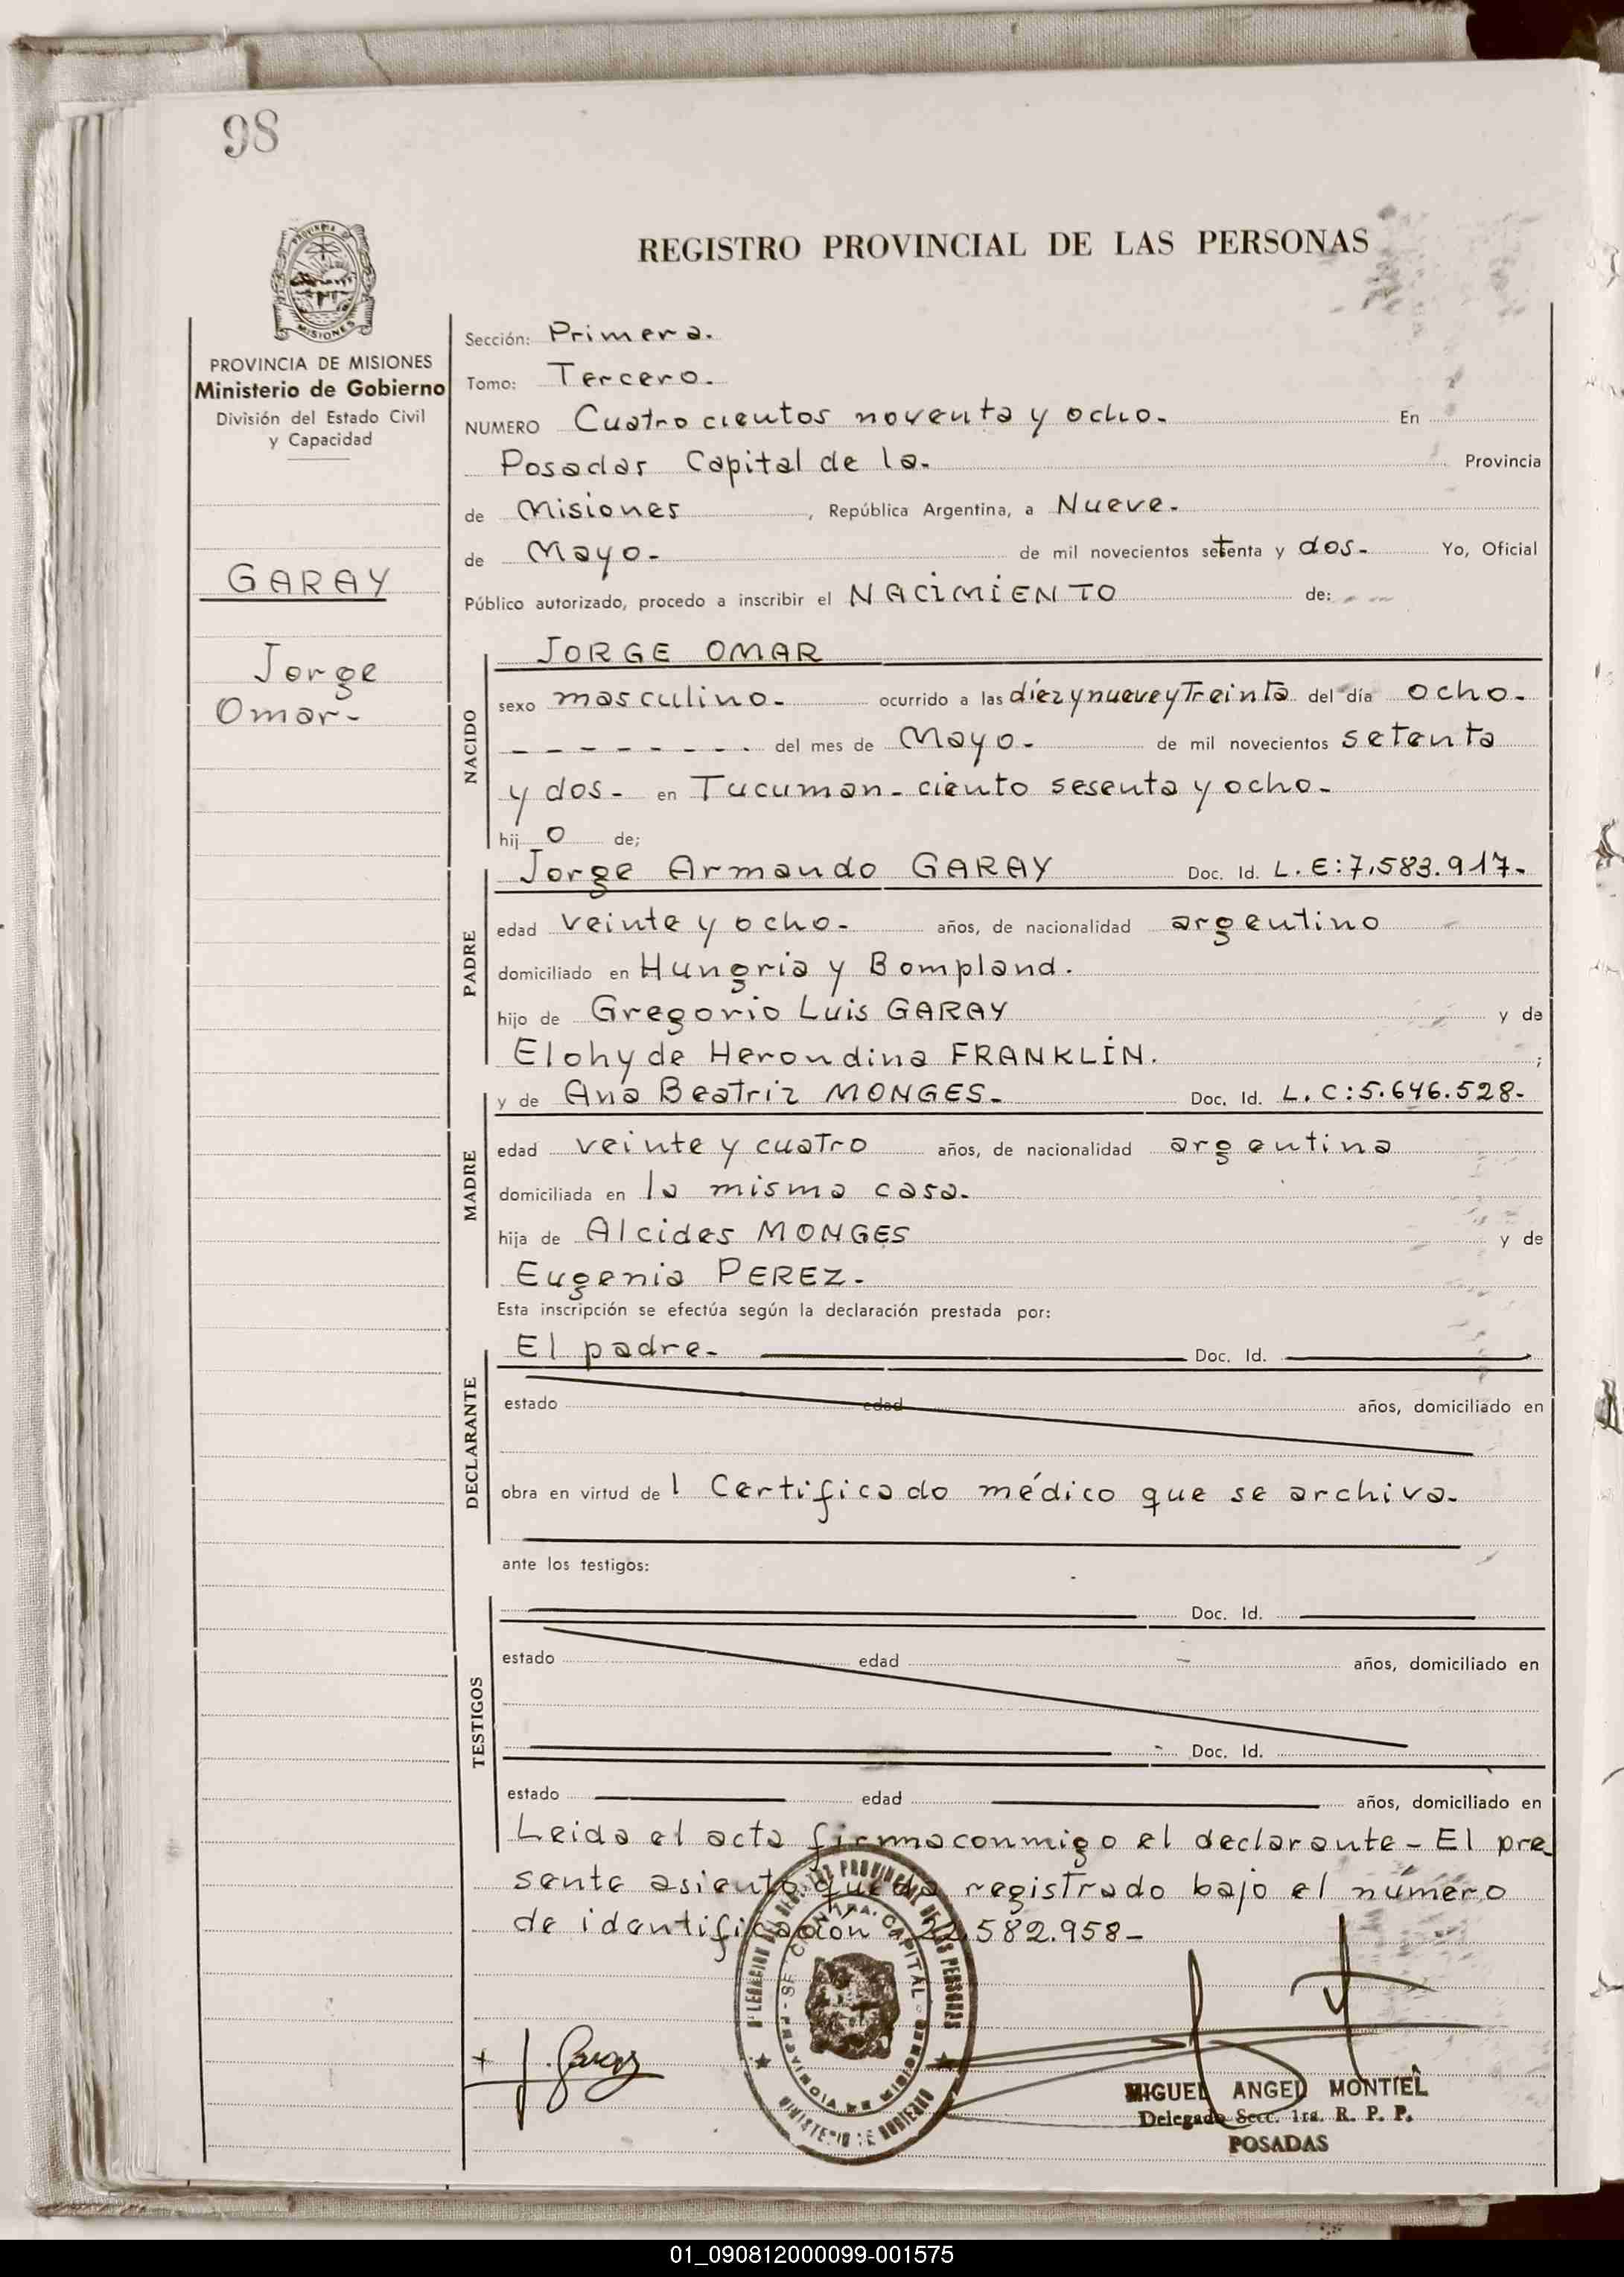 98
PROVINCIA DE
MISIONES
REGISTRO PROVINCIAL DE LAS PERSONAS
PROVINCIA DE MISIONES
Ministerio de Gobierno
División del Estado Civil
y Capacidad
GARAY
Jorge
Omar-
Sección: Primera.
Tomo: Tercero.
NUMERO Cuatrocientos noventa y ocho. En
Posadas Capital de la. Provincia
de Misiones, República Argentina, a Nueve.
de Mayo- de mil novecientos setenta y dos- Yo, Oficial
Público autorizado, procedo a inscribir el NACIMIENTO de:
JORGE OMAR
NACIDO
sexo masculino- ocurrido a las diez y nueve y Treinta del día ocho-
- - - - - - - - del mes de Mayo- de mil novecientos setenta
y dos- en Tucuman- ciento sesenta y ocho-
hijo de;
PADRE
Jorge Armando GARAY Doc. Id. L.E:7.583.917-
edad veinte y ocho- años, de nacionalidad argentino
domiciliado en Hungria y Bompland.
hijo de Gregorio Luis GARAY y de
Elohy de Herondina FRANKLIN. ;
MADRE
y de Ana Beatriz MONGES- Doc. Id. L.C:5.646.528-
edad veinte y cuatro años, de nacionalidad argentina
domiciliada en la misma casa-
hija de Alcides MONGES y de
Eugenia PEREZ-
Esta inscripción se efectúa según la declaración prestada por:
DECLARANTE
El padre- Doc. Id.
estado edad años, domiciliado en
obra en virtud del Certificado médico que se archiva-
ante los testigos:
TESTIGOS
Doc. Id.
estado edad años, domiciliado en
Doc. Id.
estado edad años, domiciliado en
Leida el acta firma conmigo el declarante- El pre
sente asiento queda registrado bajo el número
de identificación 22.582.958-
J. Garay
MIGUEL ANGEL MONTIEL
Delegado Secc. 1ra. R. P. P.
POSADAS
01_090812000099-001575